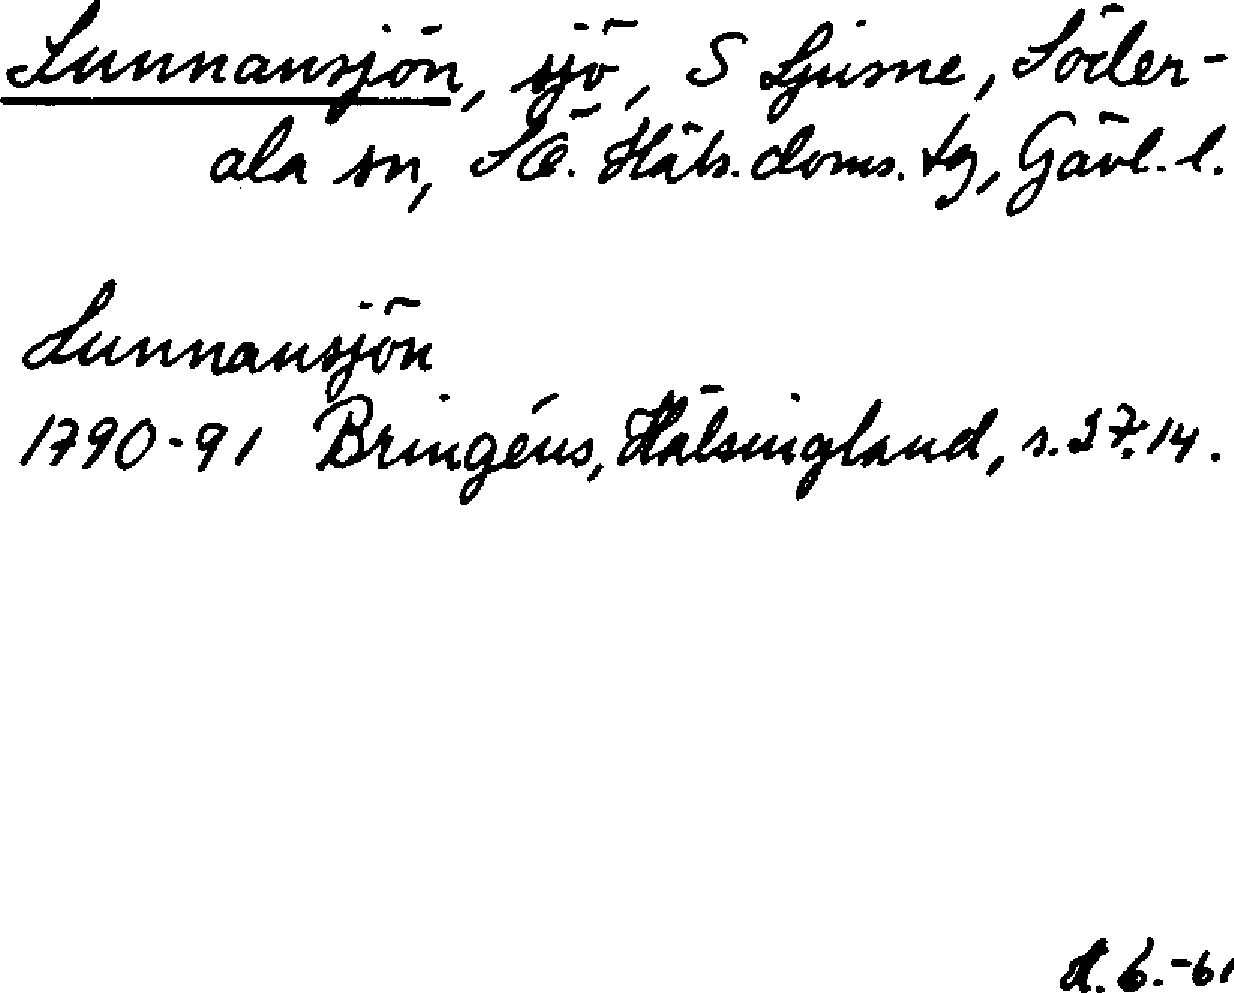 Sunnansjön, sjö, S Ljusne, Söder-
ala sn, SÖ. Häls. doms. tg, Gävl. l.
Sunnansjön
1790-91 Bringéus, Hälsingland, s. 27:14.
6.-61